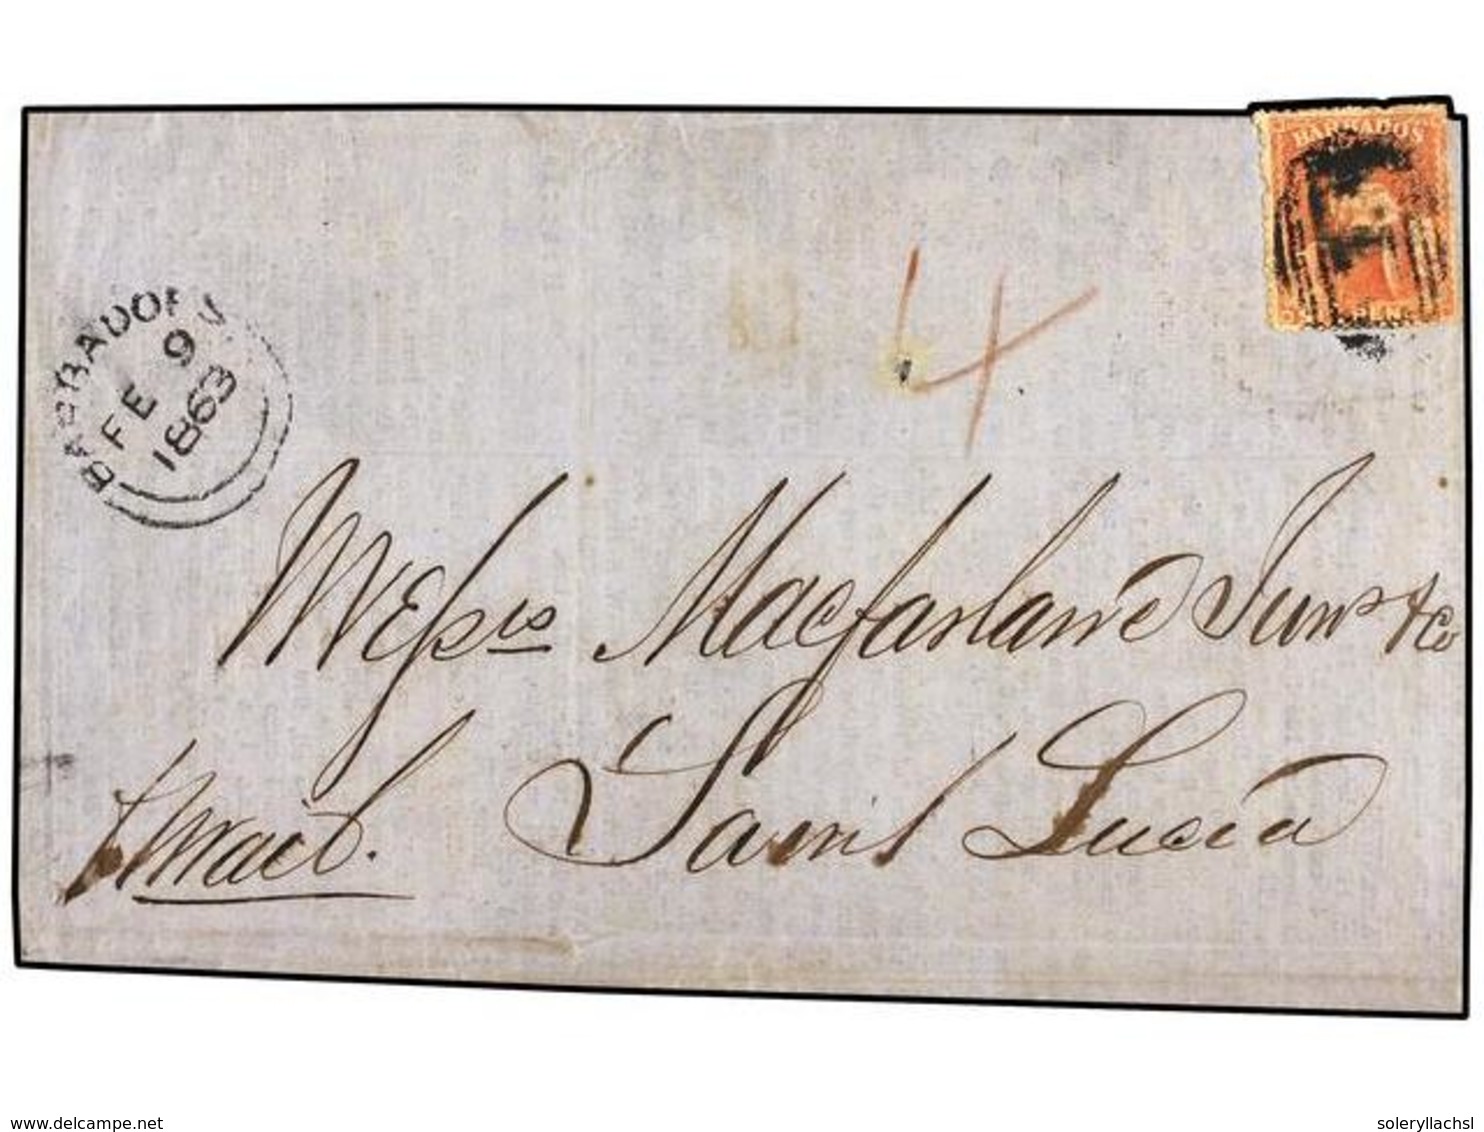 BARBADOS
BARBADOES
FE 9
1863
4
Messrs Macfarlane Junr & Co
Saint Lucia
p mail.
delcampe.net
soleryllachsl